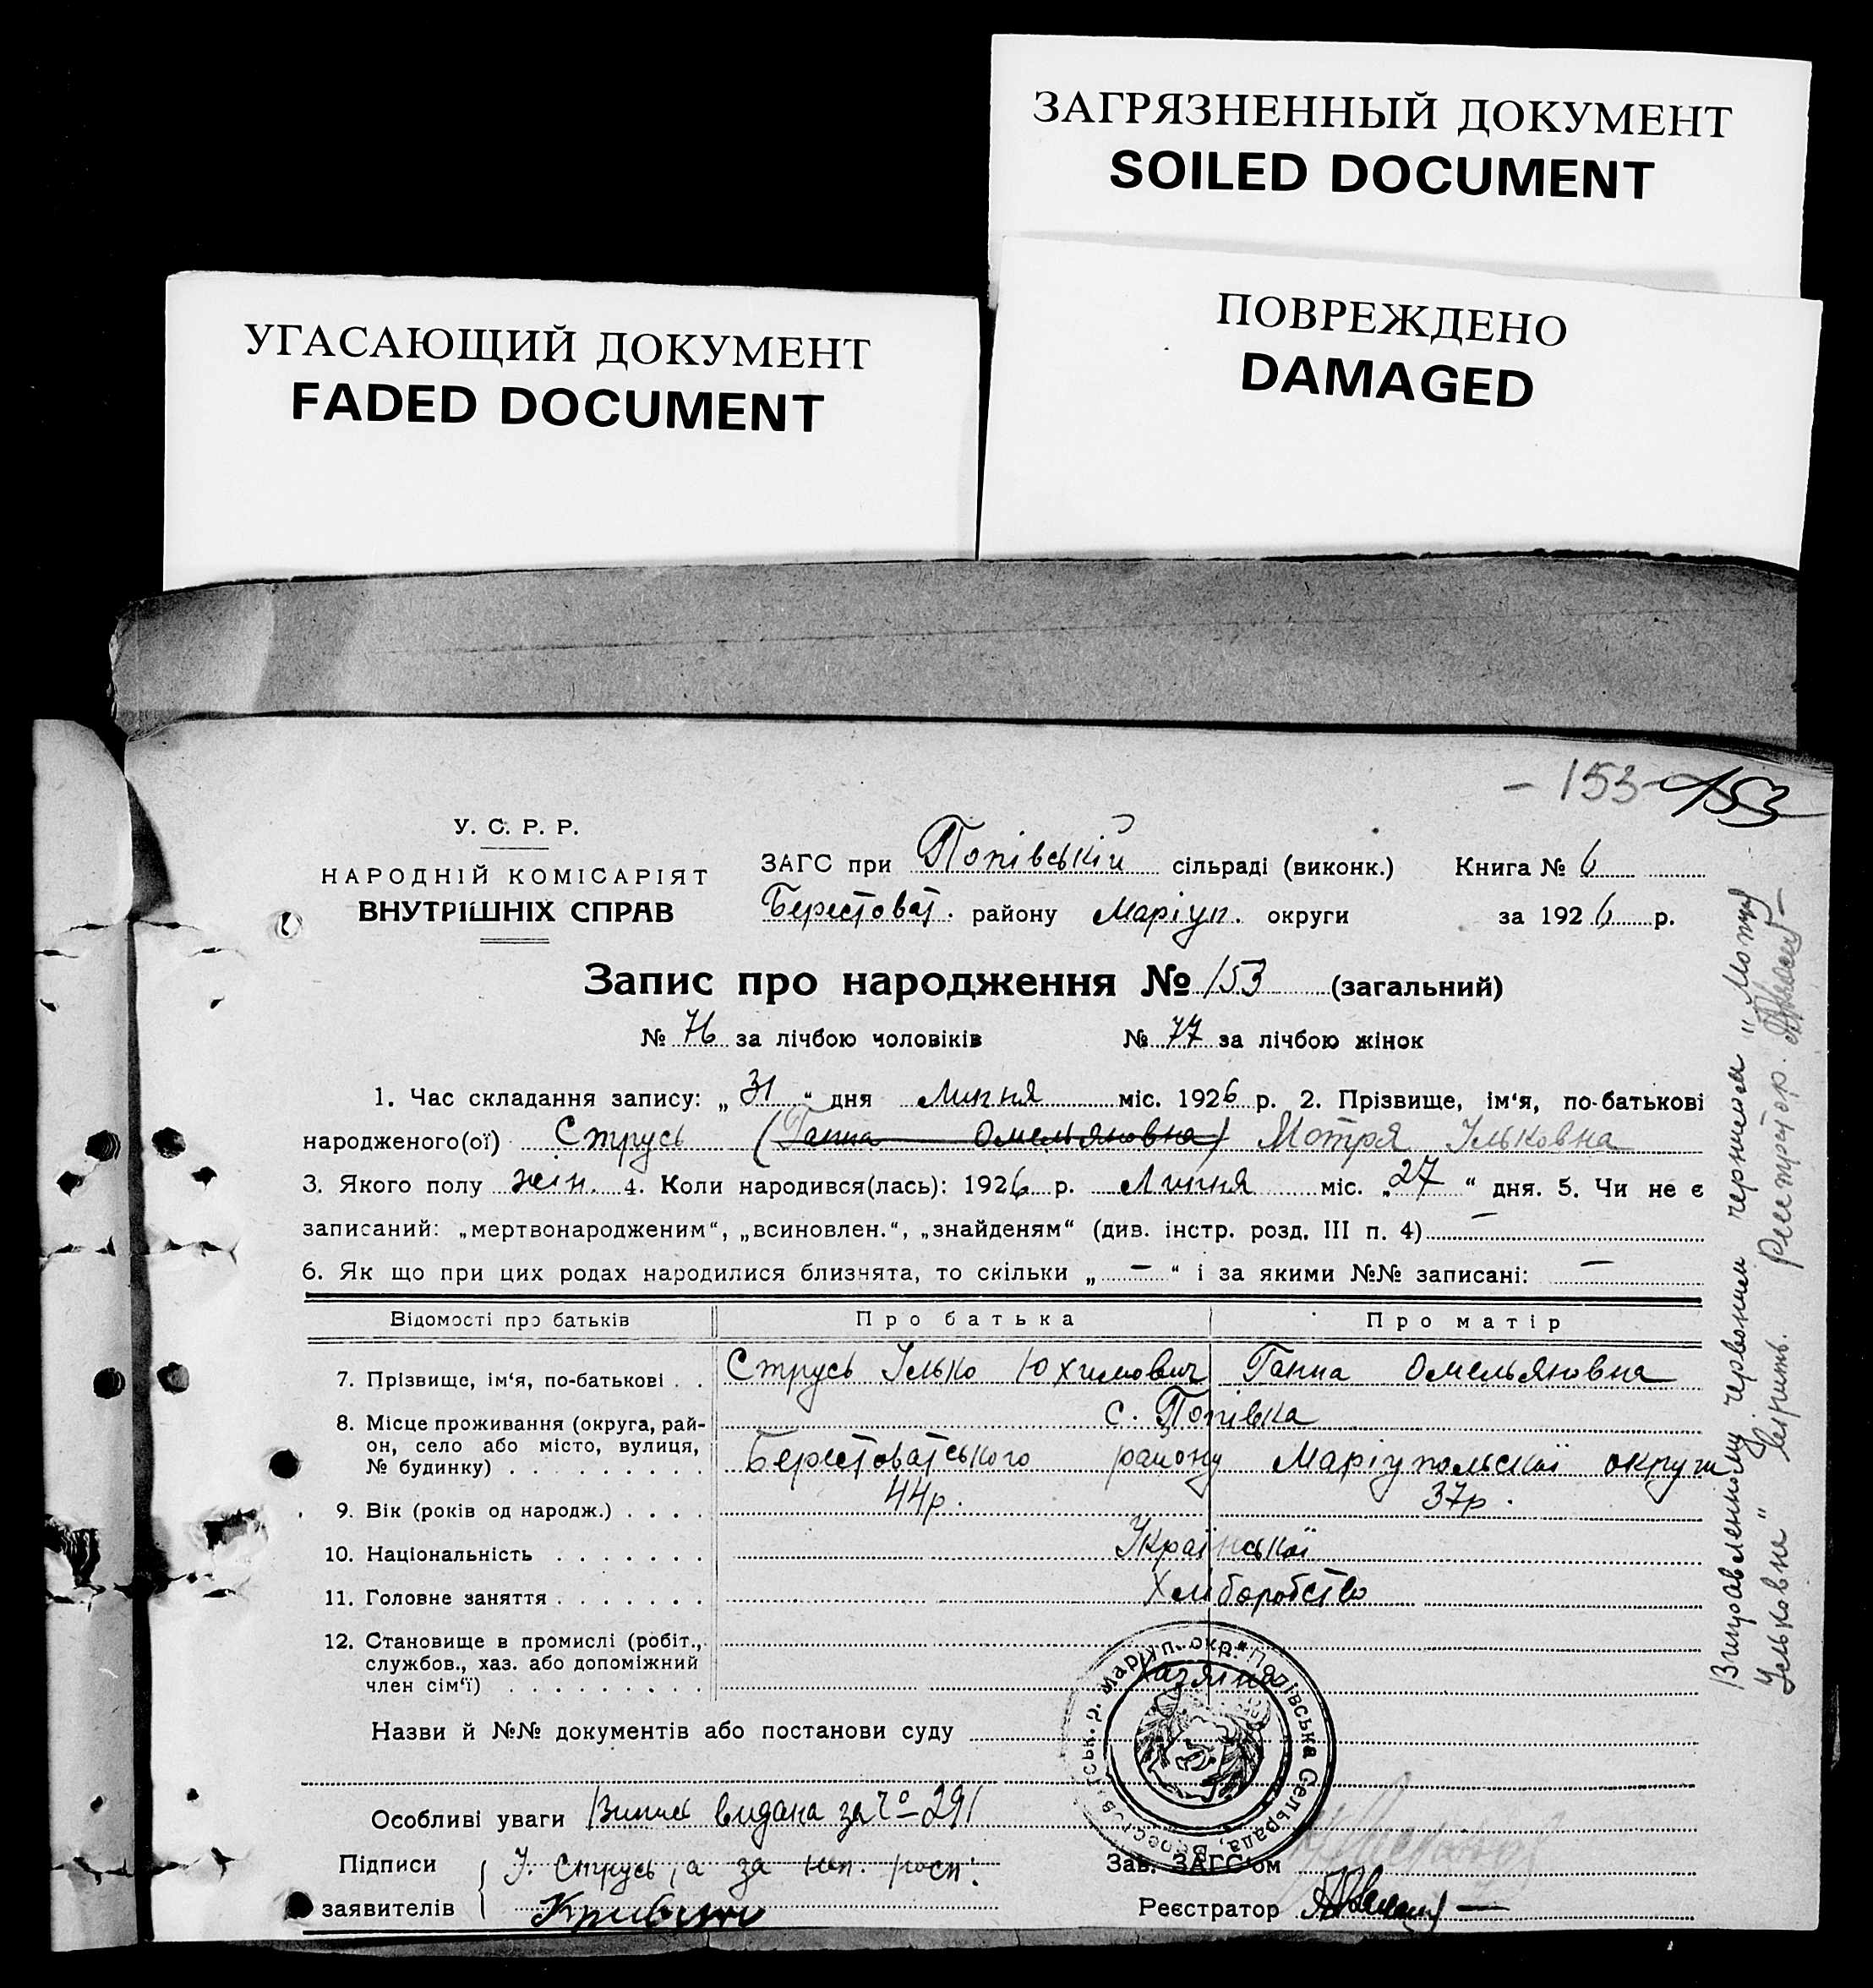 ЗАГРЯЗНЕННЫЙ ДОКУМЕНТ
SOILED DOCUMENT
ПОВРЕЖДЕНО
DAMAGED
УГАСАЮЩИЙ ДОКУМЕНТ
FADED DOCUMENT
– 153 – 153
У. С. Р. Р.
НАРОДНІЙ КОМІСАРІЯТ
ВНУТРІШНІХ СПРАВ
ЗАГС при Попівській сільраді (виконк.) Книга № 6
Берестоват. району Маріуп. округи за 1926 р.
Запис про народження № 153 (загальний)
№ 76 за лічбою чоловіків № 77 за лічбою жінок
1. Час складання запису: „31“ дня Липня міс. 1926 р. 2. Прізвище, ім‘я, по-батькові
народженого(ої) Струсь (Ганна Омельяновна) Мотря Ільковна
3. Якого полу жін. 4. Коли народився(лась): 1926 р. Липня міс. „27“ дня. 5. Чи не є
записаний: „мертвонародженим“, „всиновлен.“, „знайденям“ (див. інстр. розд. III п. 4) –
6. Як що при цих родах народилися близнята, то скільки „–“ і за якими №№ записані: –
Відомості про батьків Про батька Про матір
7. Прізвище, ім‘я, по-батькові . . Струсь Ілько Юхимович Ганна Омельяновна
8. Місце проживання (округа, рай- с. Попівка
он, село або місто, вулиця,
№ будинку) . . . . . . . . . Берестоватського району Маріупольської округи
9. Вік (років од народж.) . . . . 44р. 37р.
10. Національність . . . . . . . Української
11. Головне заняття . . . . . . . Хліборобство
12. Становище в промислі (робіт.,
службов., хаз. або допоміжний
член сім‘ї) . . . . . . . . . Хазяїна
Назви й №№ документів або постанови суду
Особливі уваги Випис видана за № 291
Підписи І. Струсь, а за неп. росп. Зав. ЗАГС‘ом
заявителів Реєстратор
Маріуп. окр. Попівська Сельрада, Берестоватськ. р.
Виправленному червоним чернилом "Мотря
Ільковна" вірить. Реєстратор.